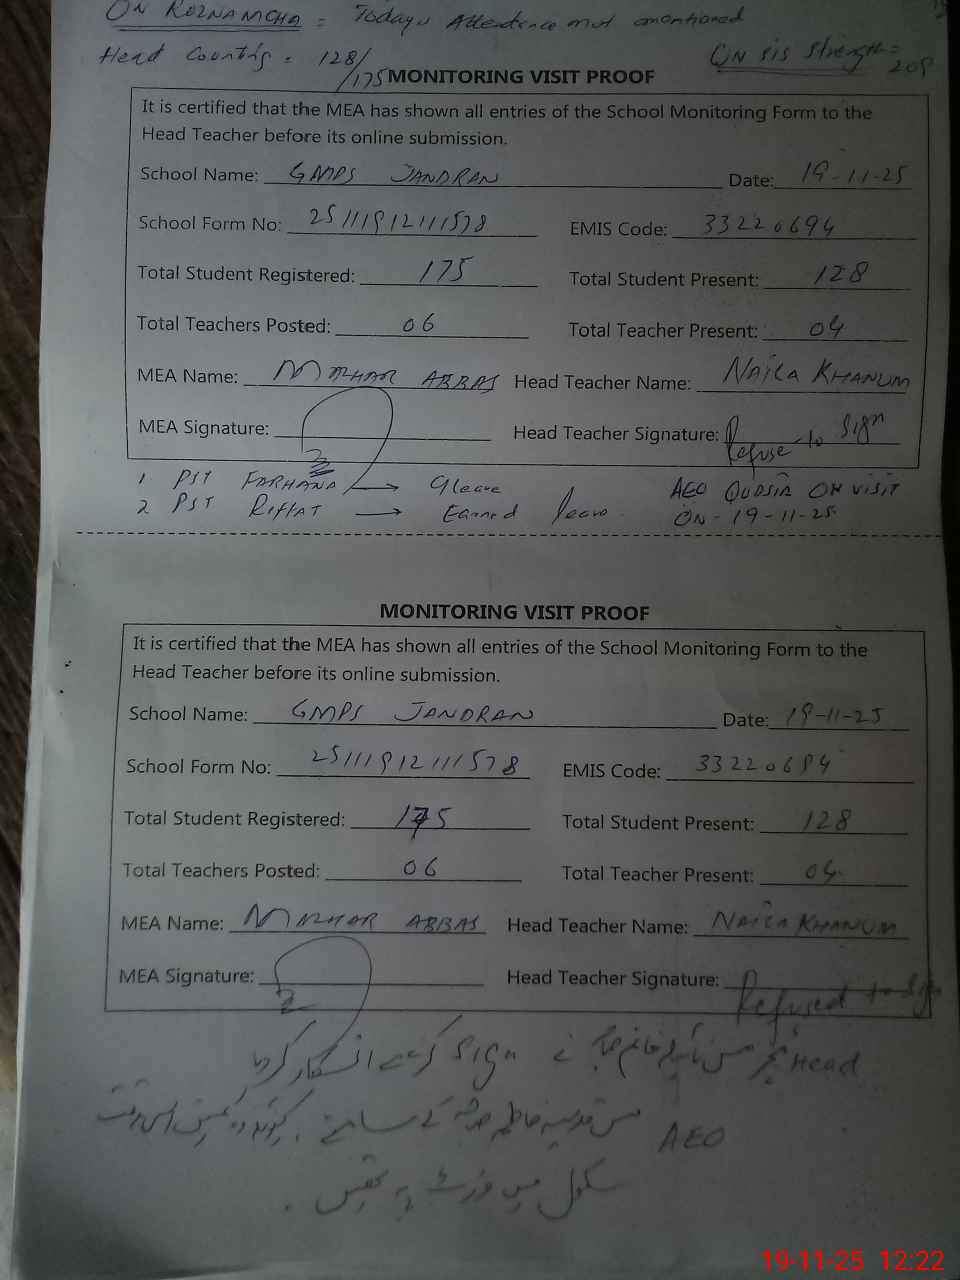 On ROZNAMCHA = Today,s Attendence not mentioned
Head Counting = 128/175
ON SIS Strength = 209
MONITORING VISIT PROOF
It is certified that the MEA has shown all entries of the School Monitoring Form to the
Head Teacher before its online submission.
School Name: GMPS JANDRAN Date: 19-11-25
School Form No: 25111912111578 EMIS Code: 33220694
Total Student Registered: 175 Total Student Present: 128
Total Teachers Posted: 06 Total Teacher Present: 04
MEA Name: MAZHAR ABBAS Head Teacher Name: NAILA KHANUM
MEA Signature: Head Teacher Signature: Refuse to Sign
1 PST FARHANA → leave AEO QUDSIA ON VISIT
2 PST RIFFAT → Earned leave ON - 19-11-25
MONITORING VISIT PROOF
It is certified that the MEA has shown all entries of the School Monitoring Form to the
Head Teacher before its online submission.
School Name: GMPS JANDRAN Date: 19-11-25
School Form No: 25111912111578 EMIS Code: 33220694
Total Student Registered: 175 Total Student Present: 128
Total Teachers Posted: 06 Total Teacher Present: 04
MEA Name: MAZHAR ABBAS Head Teacher Name: NAILA KHANUM
MEA Signature: Head Teacher Signature: Refused to Sign
Head ٹیچر مس نائلہ خانم صاحبہ نے Sign کرنے سے انکار کر دیا
AEO مس قدسیہ فاطمہ صاحبہ کے سامنے ۔ کیونکہ وہ بھی اس وقت
سکول میں وزٹ پہ تھیں ۔
19-11-25 12:22